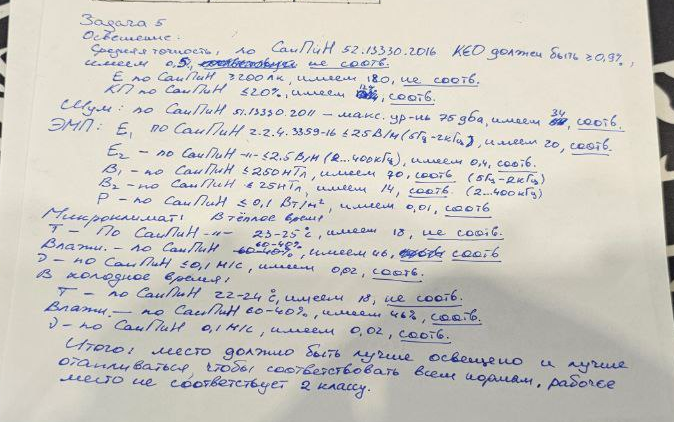 Задача 5
Освещение:
Средняя точность, по СанПиН 52.13330.2016 КЕО должен быть ≥0,9%,
имеем 0,5, не соотв.
Е по СанПиН ≥200 лк, имеем 180, не соотв.
КП по СанПиН ≤20%, имеем 12%, соотв.
Шум: по СанПиН 51.13330.2011 – макс. ур-нь 75 дба, имеем 34, соотв.
ЭМП: Е₁ по СанПиН 2.2.4.3359-16 ≤25 В/м (5Гц-2кГц), имеем 20, соотв.
Е₂ – по СанПиН –"– ≤2.5 В/м (2...400кГц), имеем 0,4, соотв.
В₁ – по СанПиН ≤250 нТл, имеем 70, соотв. (5Гц-2кГц)
В₂ – по СанПиН ≤25нТл, имеем 14, соотв. (2...400кГц)
Р – по СанПиН ≤0,1 Вт/м², имеем 0,01, соотв
Микроклимат: В тёплое время
Т – По СанПиН –"– 23-25°с, имеем 18, не соотв.
Влажн. – по СанПиН 60-40%, имеем 46, соотв
υ – по СанПиН ≤0,1 м/с, имеем 0,02, соотв.
В холодное время:
Т – по СанПиН 22-24°с, имеем 18, не соотв.
Влажн. – по СанПиН 60-40%, имеем 46%, соотв.
υ – по СанПиН 0,1 м/с, имеем 0,02, соотв.
Итого: место должно быть лучше освещено и лучше
отапливаться, чтобы соответствовать всем нормам, рабочее
место не соответствует 2 классу.